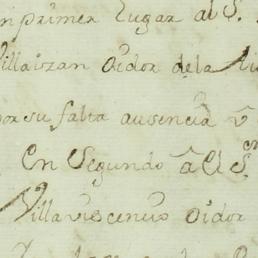 en primer Lugar al S.
Villaizan Oidor de la Au
por su falta ausencia v
En Segundo al S.
Villavicencio Oidor